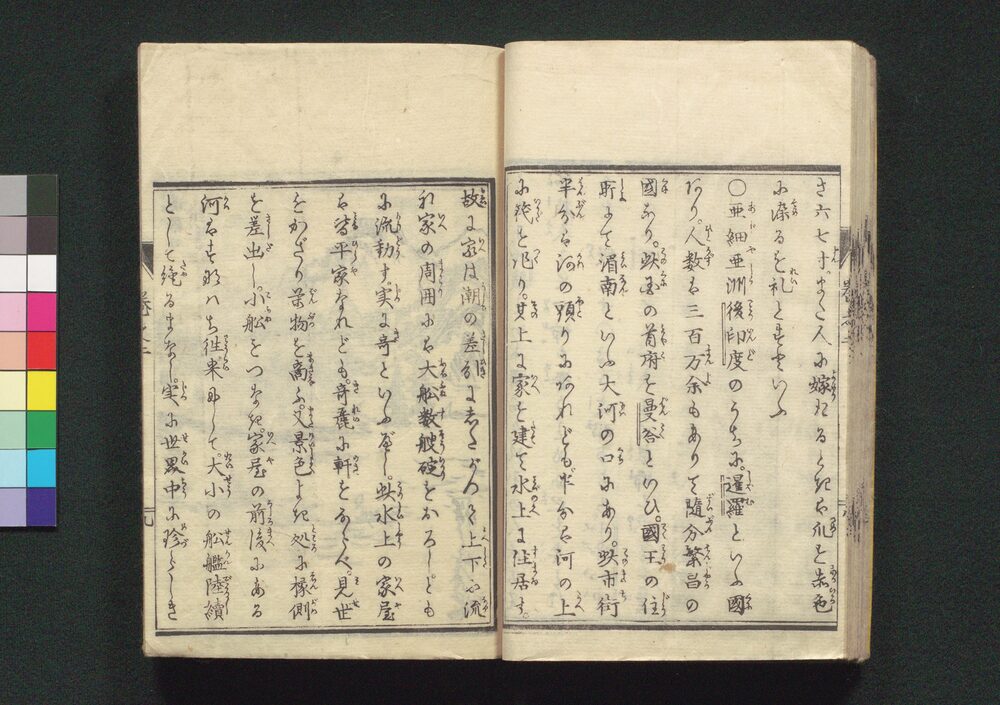 さ六七寸。また人に嫁たるときは爪を赤色
に染るを礼とすといふ
〇亜細亜洲後印度のうちに。暹羅といふ國
あり。人数は三百万余もありて随分繁昌の
國なり。此国の首府を曼谷といひ。國王の住
所にて湄南といふ大河の口にあり。此市街
半分は河の頭りにあれども半分は河の上
に筏を作り。其上に家を建て水上に住居す。
故に家は潮の差引にしたがつて上下に流
れ家の周囲には大船数艘碇をおろしとも
に流動す。実に奇といふべし。此水上の家屋
は皆平家なれども。奇麗に軒をならべ。見世
をかざり荣物を商ふ。又景色よき処に椽側
を差出し。小船をつなき家屋の前後にある
河はすなはち往来にして。大小の船艦陸續
として絶るまなし。実に世界中に珍らしき